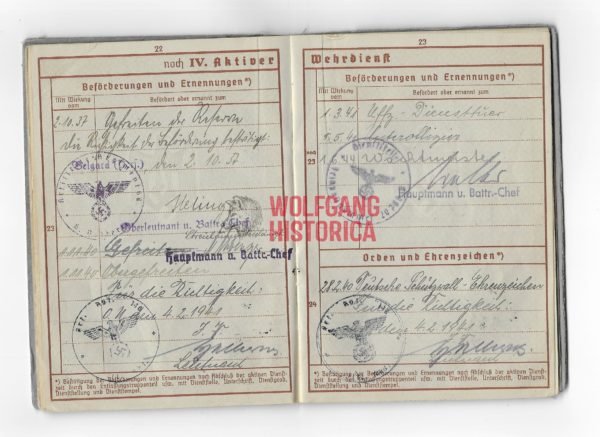 22
noch IV. Aktiver
Beförderungen und Ernennungen*)
Mit Wirkung vom
Befördert oder ernannt zum
2.10.37 Gefreiten der Reserve
Die Richtigkeit der Beförderung bestätigt:
Belgard den 2.10.37
Oberleutnant u. Battr.-Chef
Hauptmann u. Battr.-Chef
23
1.11.40 Gefreiter
1.11.40 Obergefreiten
Für die Richtigkeit:
O.U. den 4.2.1941
Leutnant
*) Bestätigung der Beförderungen und Ernennungen nach Abschluß der aktiven Dienst-
zeit durch den Entlassungstruppenteil usw. mit Dienststelle, Unterschrift, Dienstgrad,
Dienststempel.
23
Wehrdienst
Beförderungen und Ernennungen*)
Mit Wirkung vom
Befördert oder ernannt zum
1.3.41 Uffz.
noch 23
1.6.44 Wachtmeister
Hauptmann u. Battr.-Chef
Orden und Ehrenzeichen*)
28.2.40 Deutsche Schutzwall-Ehrenzeichen
24
Für die Richtigkeit:
4.2.1941
*) Bestätigung der Beförderungen und Ernennungen nach Abschluß der aktiven Dienst-
zeit durch den Entlassungstruppenteil usw. mit Dienststelle, Unterschrift, Dienstgrad,
Dienststempel.
WOLFGANG
HISTORICA